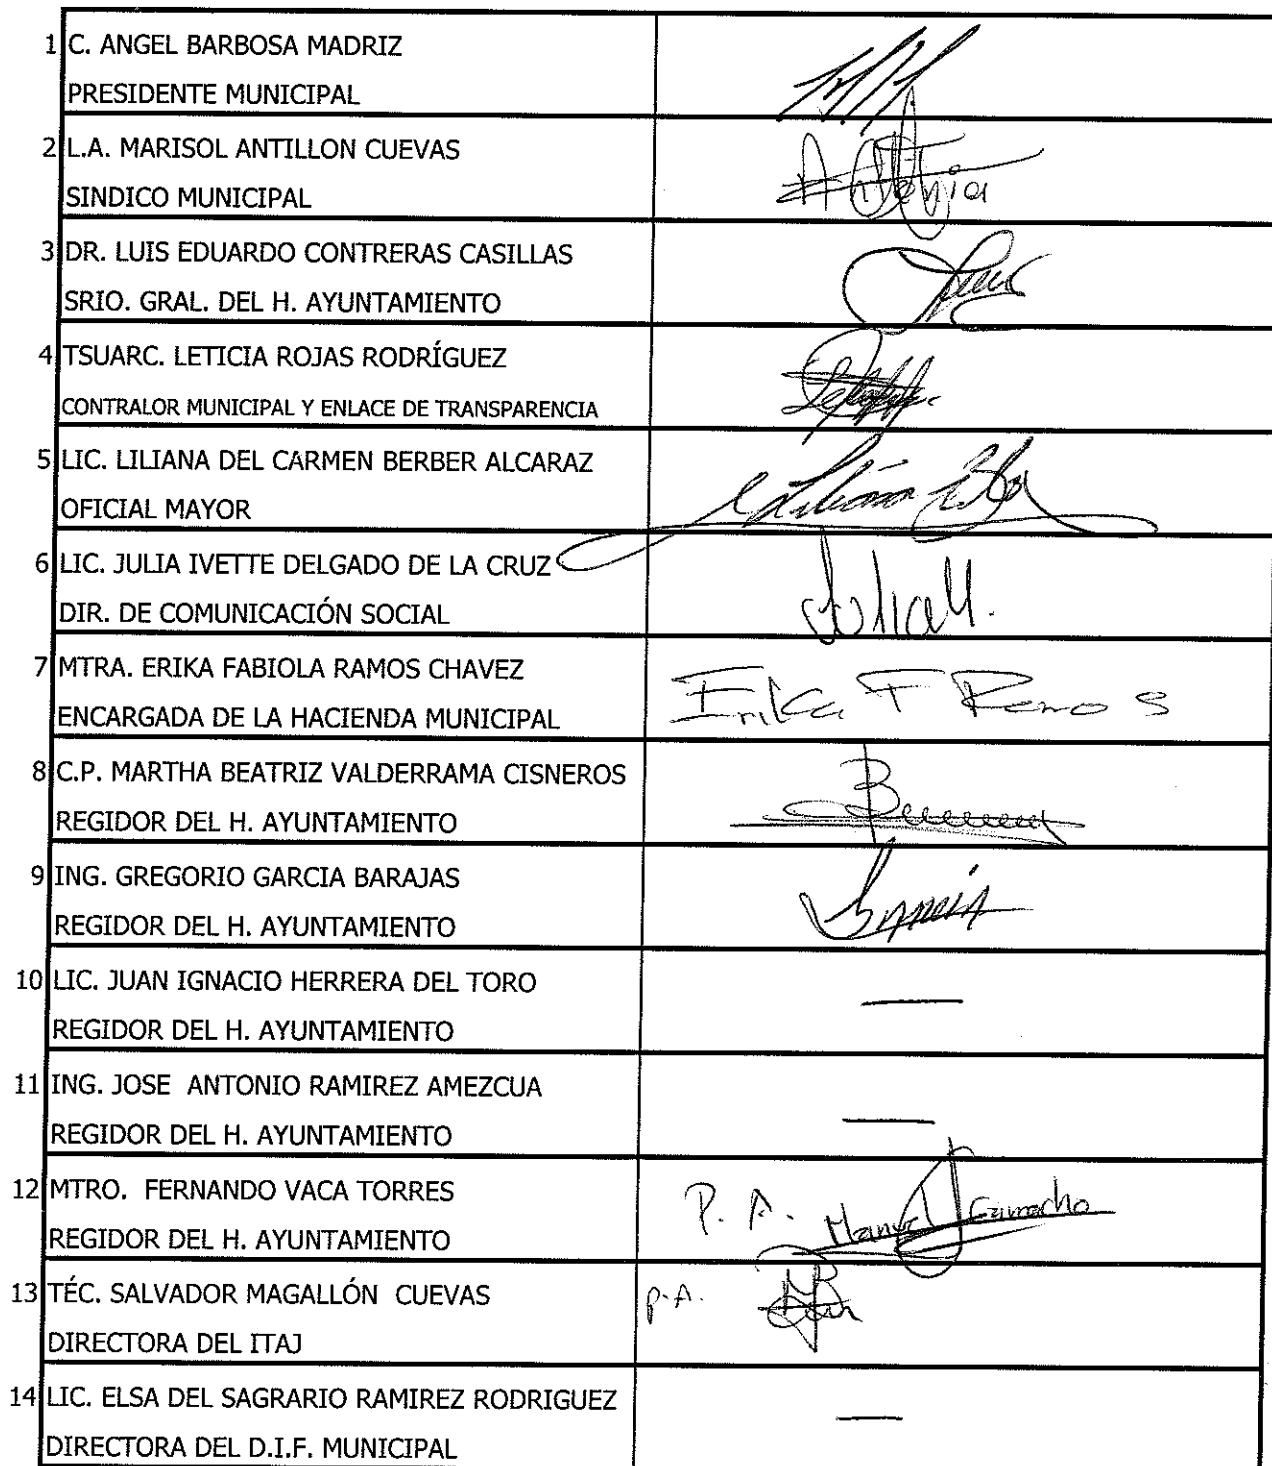 1 C. ANGEL BARBOSA MADRIZ
PRESIDENTE MUNICIPAL
2 L.A. MARISOL ANTILLON CUEVAS
SINDICO MUNICIPAL
3 DR. LUIS EDUARDO CONTRERAS CASILLAS
SRIO. GRAL. DEL H. AYUNTAMIENTO
4 TSUARC. LETICIA ROJAS RODRÍGUEZ
CONTRALOR MUNICIPAL Y ENLACE DE TRANSPARENCIA
5 LIC. LILIANA DEL CARMEN BERBER ALCARAZ
OFICIAL MAYOR
6 LIC. JULIA IVETTE DELGADO DE LA CRUZ
DIR. DE COMUNICACIÓN SOCIAL
7 MTRA. ERIKA FABIOLA RAMOS CHAVEZ
ENCARGADA DE LA HACIENDA MUNICIPAL
Erika F Ramos
8 C.P. MARTHA BEATRIZ VALDERRAMA CISNEROS
REGIDOR DEL H. AYUNTAMIENTO
9 ING. GREGORIO GARCIA BARAJAS
REGIDOR DEL H. AYUNTAMIENTO
10 LIC. JUAN IGNACIO HERRERA DEL TORO
REGIDOR DEL H. AYUNTAMIENTO
11 ING. JOSE ANTONIO RAMIREZ AMEZCUA
REGIDOR DEL H. AYUNTAMIENTO
12 MTRO. FERNANDO VACA TORRES
REGIDOR DEL H. AYUNTAMIENTO
P. A. Manuel Camacho
13 TÉC. SALVADOR MAGALLÓN CUEVAS
DIRECTORA DEL ITAJ
P.A.
14 LIC. ELSA DEL SAGRARIO RAMIREZ RODRIGUEZ
DIRECTORA DEL D.I.F. MUNICIPAL